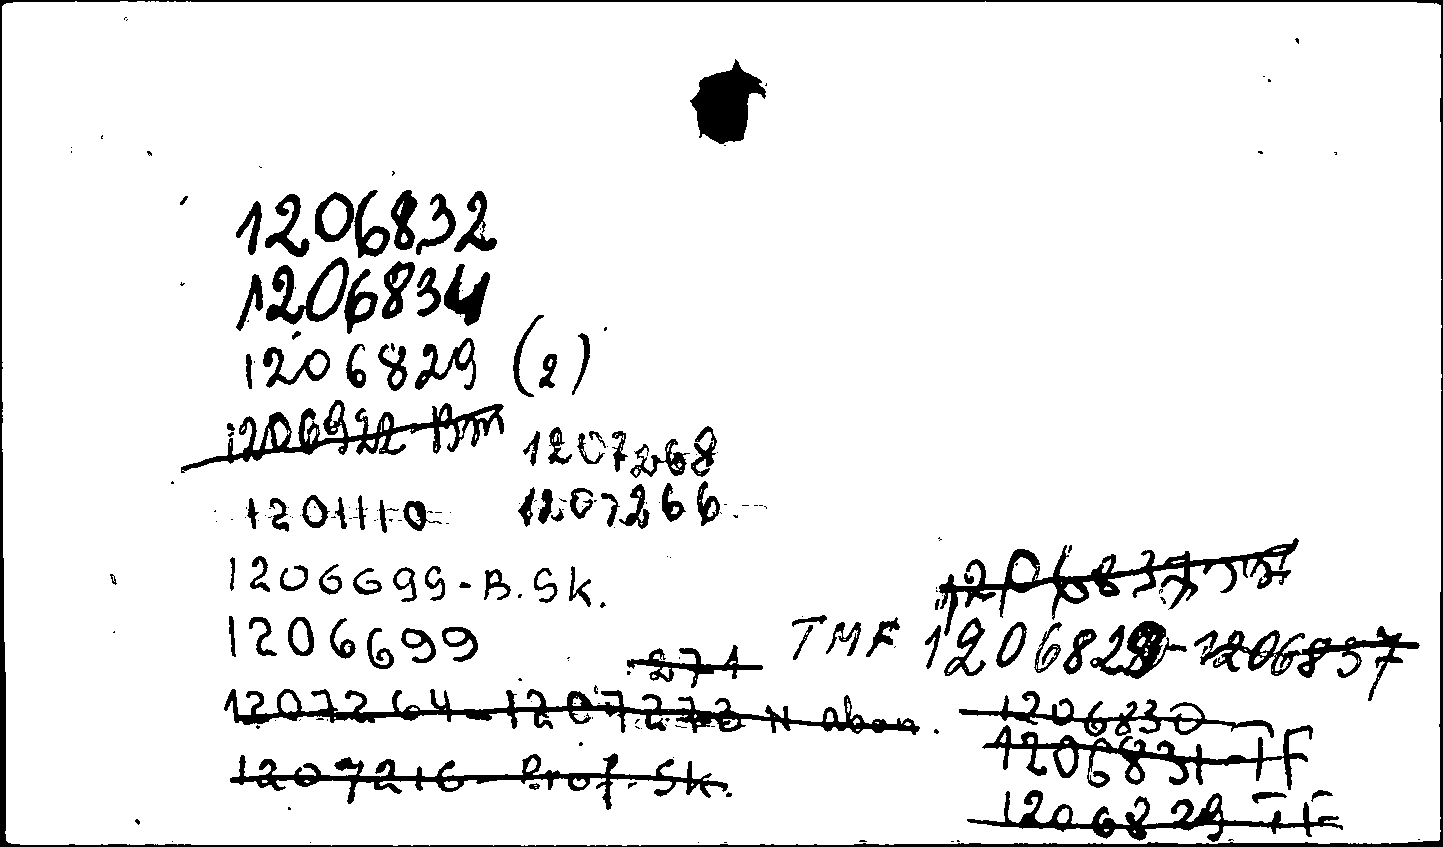 1206832
1206834
1206829 (2)
1206922-Bm
1207268
1201110
1207266
1206699-B.Sk.
1206699
271
1207264-1207273 N abon.
1207216-Prof.Sk.
TMF 1206829-1206837
1206830
1206831-TF
1206829 TF